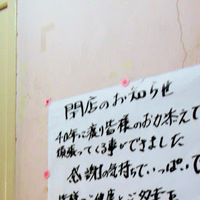 閉店のお知らせ
40年に渡り皆様のお力添えで
頑張ってくる事ができました
感謝の気持ちでいっぱいで
皆様のご健康とご多幸を